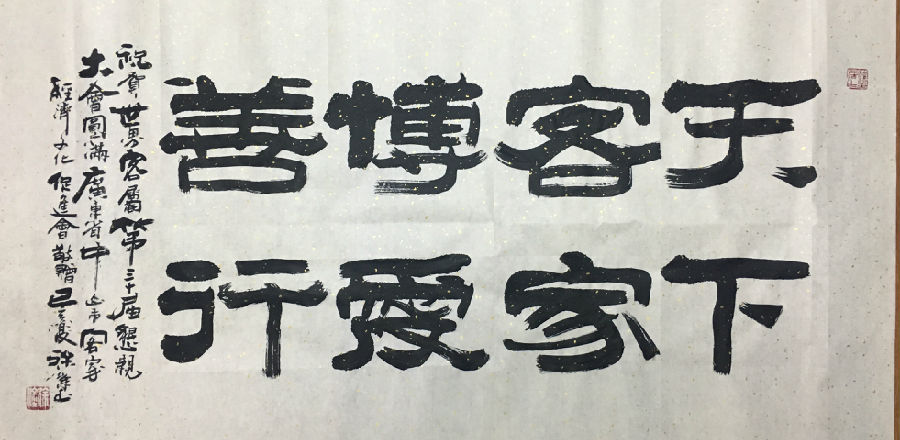 天下
客家
博愛
善行
祝賀世界客屬第三十屆懇親
大會圓滿廣東省中山市客家
經濟文化促進會敬贈己亥夏